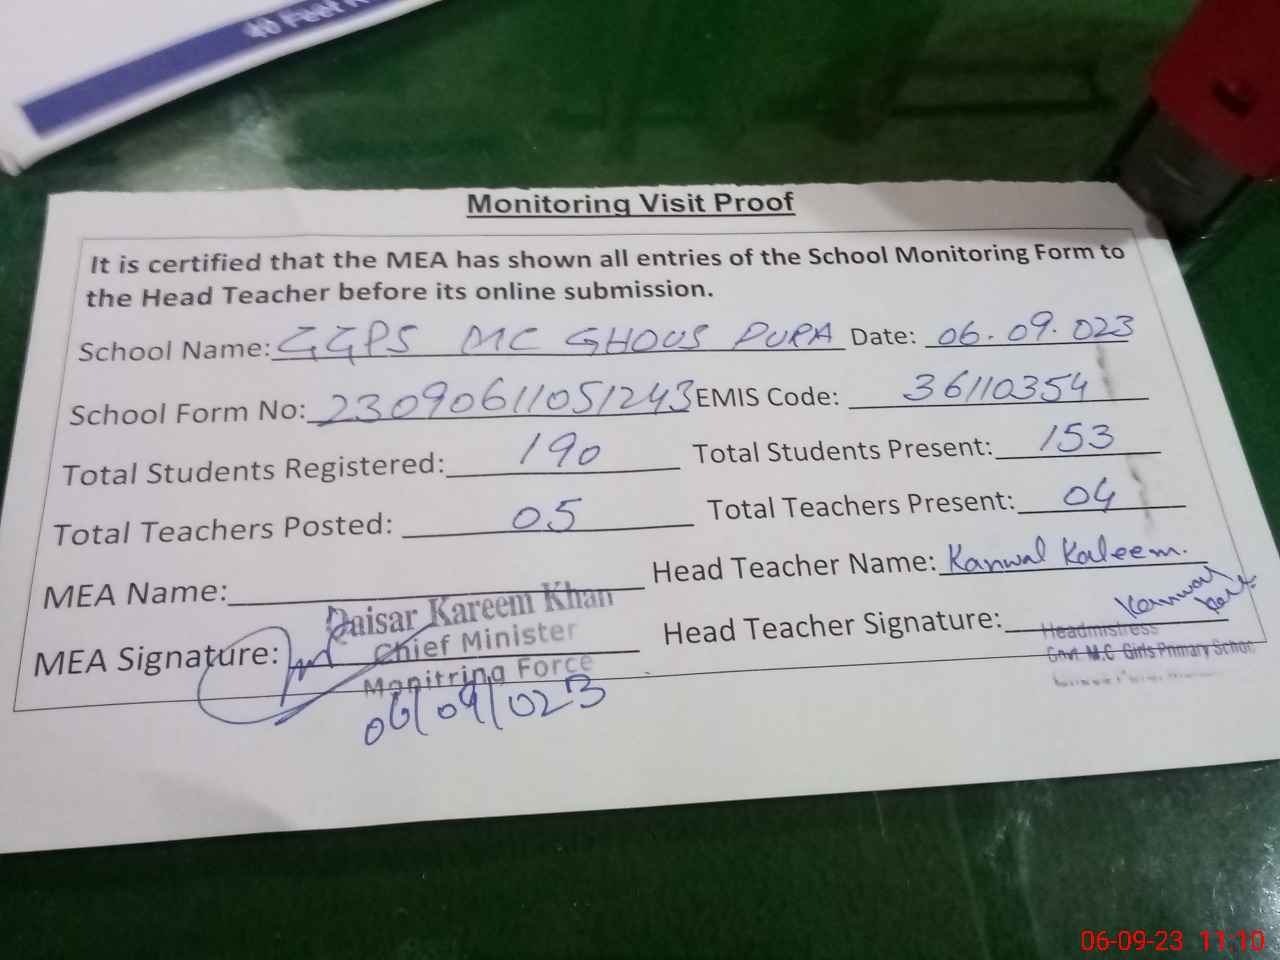 40 Feet
Monitoring Visit Proof
It is certified that the MEA has shown all entries of the School Monitoring Form to
the Head Teacher before its online submission.
School Name: GGPS MC GHOUS PURA Date: 06.09.023
School Form No: 23090611051243 EMIS Code: 36110354
Total Students Registered: 190 Total Students Present: 153
Total Teachers Posted: 05 Total Teachers Present: 04
MEA Name: Head Teacher Name: Kanwal Kaleem.
Qaisar Kareem Khan
Chief Minister
Monitring Force
MEA Signature: Head Teacher Signature: Kanwal
06/09/023
Headmistress
Govt. M.C Girls Primary School
06-09-23 11:10